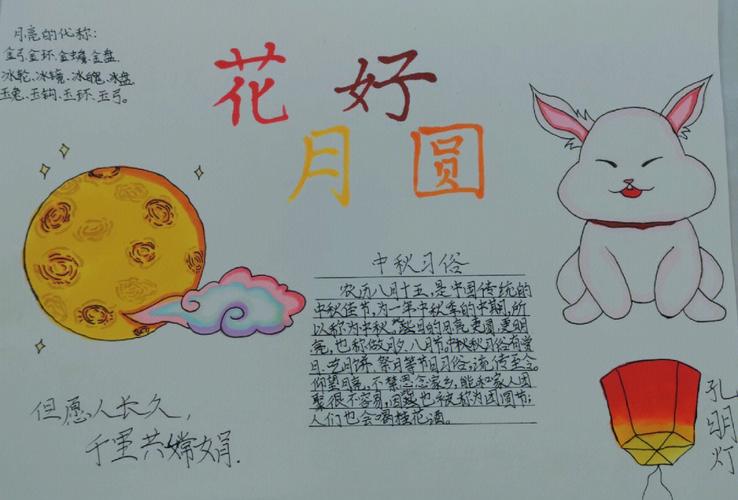 月亮的代称:
金弓、金环、金蟾、金盘
冰轮、冰镜、冰魄、冰盘
玉兔、玉钩、玉环、玉弓。
花好
月圆
中秋习俗
农历八月十五,是中国传统的
中秋佳节,为一年中秋季的中期,所
以称为中秋
月亮更圆,更明
亮,也称做月夕,八月节。中秋习俗有赏
月、吃月饼、祭月等节日习俗,流传至今。
仰望月亮,不禁思念家乡,能和家人团
聚很不容易,因
也被称为团圆节,
人们也会喝桂花酒。
但愿人长久,
千里共嫦娟.
孔明灯